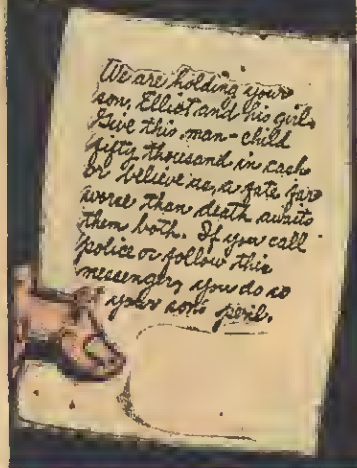 We are holding your
son, Elliot and his girl.
Give this man-child
fifty thousand in cash
or believe us, a fate far
worse than death awaits
them both. If you call
police or follow this
messenger, you do so
at your son's peril.